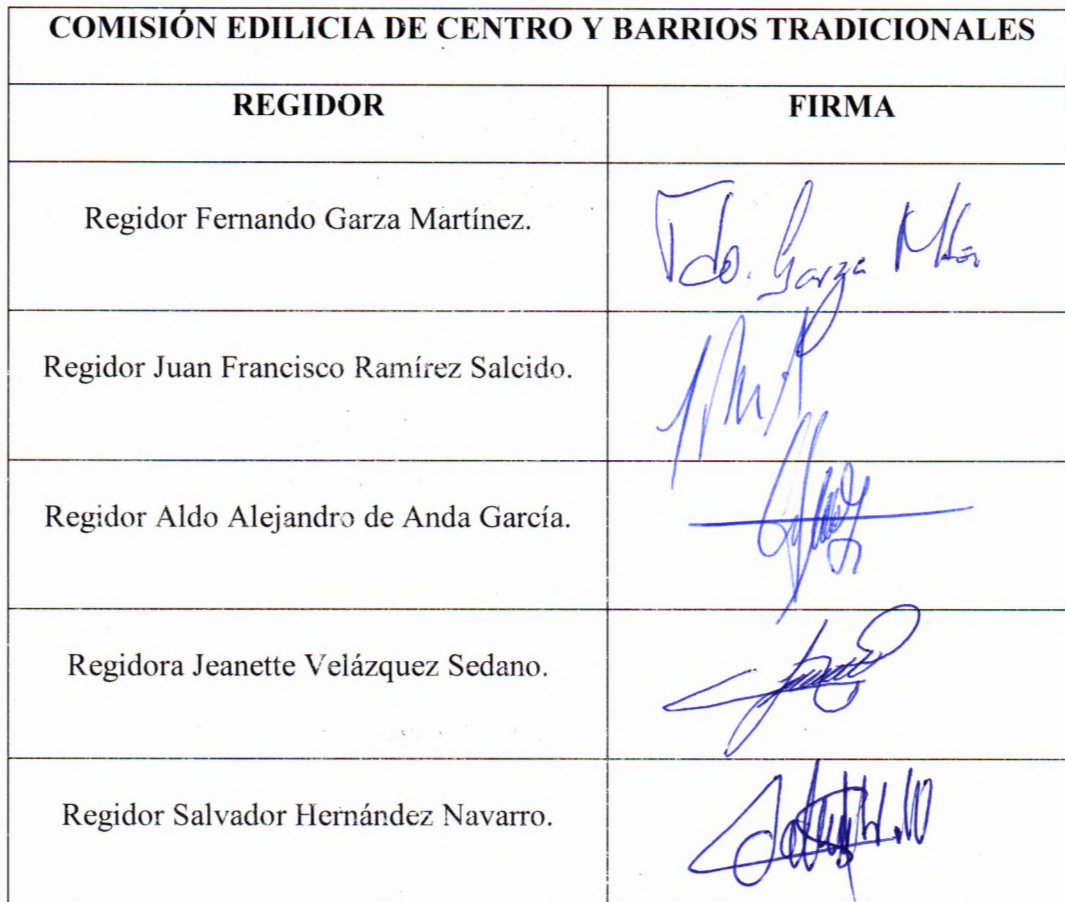 COMISIÓN EDILICIA DE CENTRO Y BARRIOS TRADICIONALES
REGIDOR FIRMA
Regidor Fernando Garza Martínez.
Fdo. Garza Mtz
Regidor Juan Francisco Ramírez Salcido.
Regidor Aldo Alejandro de Anda García.
Regidora Jeanette Velázquez Sedano.
Regidor Salvador Hernández Navarro.